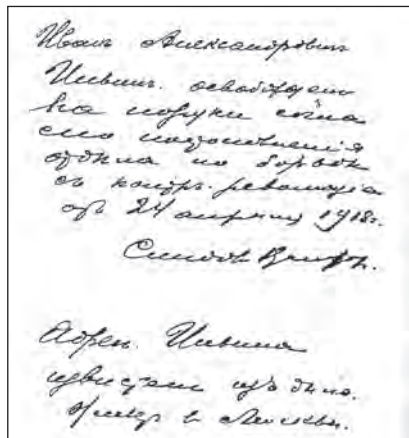 Иванъ Александровичъ
Ильинъ. освобожденъ
на поруки согла
сно постановленія
отдѣла по борьбѣ
съ контръ. революціей
отъ 24 апрѣля 1918г.
Адрес. Ильина
извѣстенъ изъ дѣла.
Живетъ в Москвѣ.